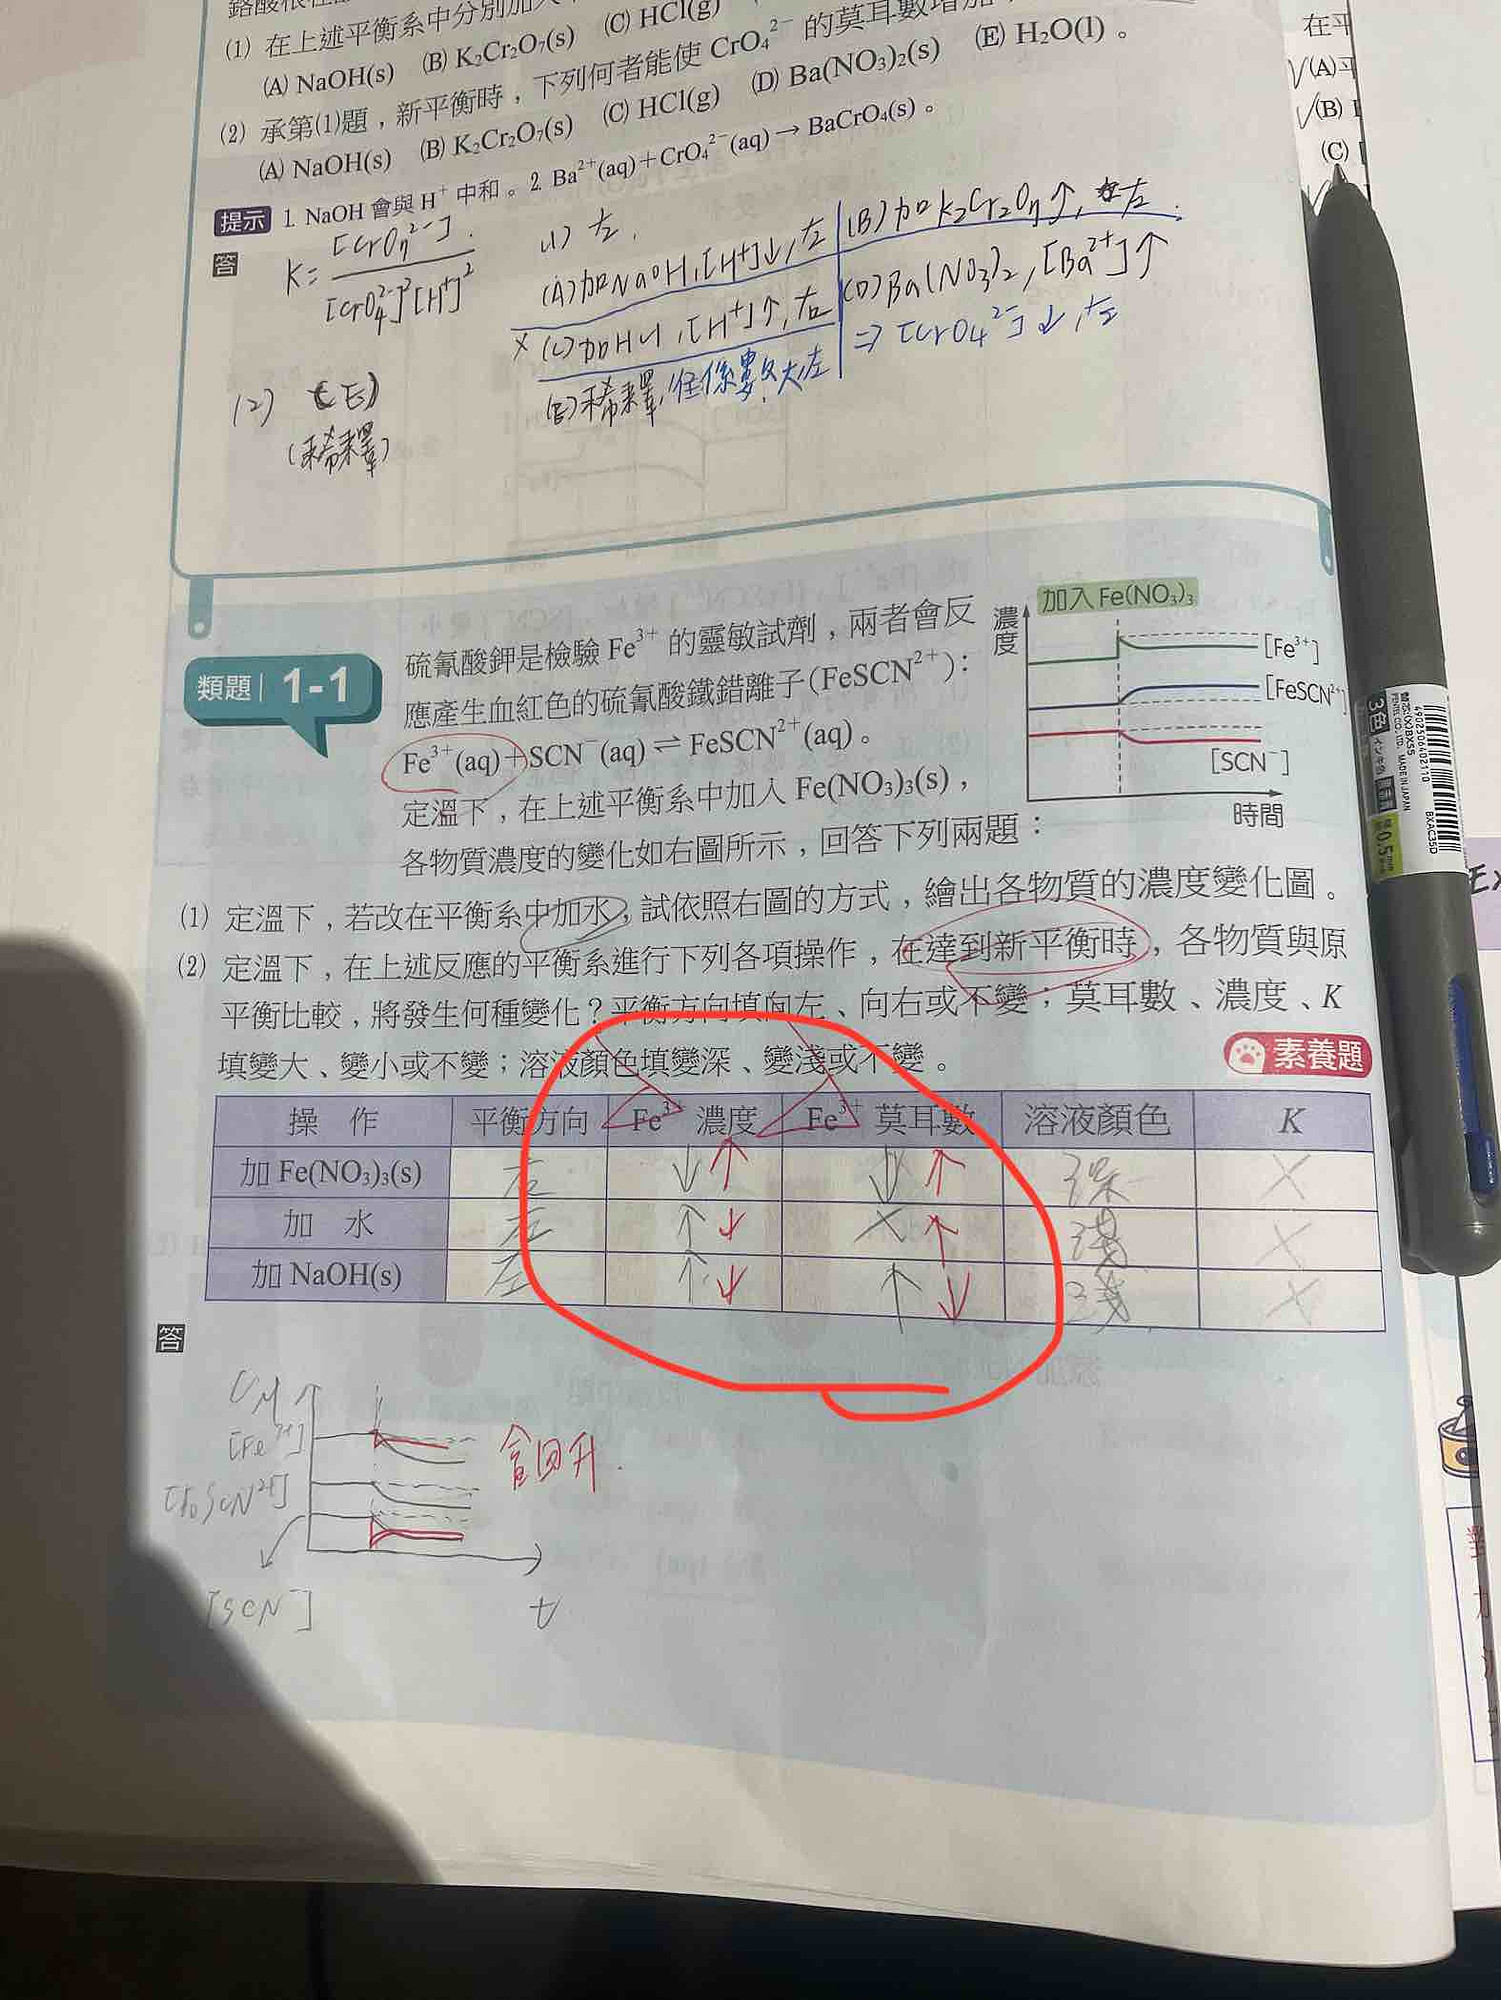 (1) 在上述平衡系中分別加入
(A) NaOH(s) (B) K₂Cr₂O₇(s) (C) HCl(g)
(2) 承第(1)題，新平衡時，下列何者能使 CrO₄²⁻ 的莫耳數增加
(A) NaOH(s) (B) K₂Cr₂O₇(s) (C) HCl(g) (D) Ba(NO₃)₂(s) (E) H₂O(l)。
提示 1. NaOH 會與 H⁺ 中和。2. Ba²⁺(aq)+CrO₄²⁻(aq)→BaCrO₄(s)。
答
K= [CrO₇²⁻] / [CrO₄²⁻]²[H⁺]²
(1) 左.
(A)加NaOH,[H⁺]↓,左
(B)加K₂Cr₂O₇↑,左.
× (C)加HCl,[H⁺]↑,右
(D)Ba(NO₃)₂,[Ba²⁺]↑
⇒[CrO₄²⁻]↓,左
(E)稀釋,往係數大,左
(2) (E)
(稀釋)
在平
√(A)平
√(B)
(C)
類題 1-1
硫氰酸鉀是檢驗 Fe³⁺ 的靈敏試劑，兩者會反
應產生血紅色的硫氰酸鐵錯離子(FeSCN²⁺)：
Fe³⁺(aq)+SCN⁻(aq)⇌FeSCN²⁺(aq)。
定溫下，在上述平衡系中加入 Fe(NO₃)₃(s)，
各物質濃度的變化如右圖所示，回答下列兩題：
加入 Fe(NO₃)₃
濃度
[Fe³⁺]
[FeSCN²⁺]
[SCN⁻]
時間
(1) 定溫下，若改在平衡系中加水，試依照右圖的方式，繪出各物質的濃度變化圖。
(2) 定溫下，在上述反應的平衡系進行下列各項操作，在達到新平衡時，各物質與原
平衡比較，將發生何種變化？平衡方向填向左、向右或不變；莫耳數、濃度、K
填變大、變小或不變；溶液顏色填變深、變淺或不變。
素養題
操 作 平衡方向 Fe³⁺ 濃度 Fe³⁺ 莫耳數 溶液顏色 K
加 Fe(NO₃)₃(s) 右 ↓ ↑ ↓ ↑ 深 ×
加 水 左 ↑ ↓ × ↑ 淺 ×
加 NaOH(s) 左 ↑ ↓ ↑ ↓ 淺 ×
答
CM
[Fe³⁺]
會回升.
[FeSCN²⁺]
[SCN⁻]
t
3色
0.5
4902506402110
BXAC35D
MADE IN JAPAN